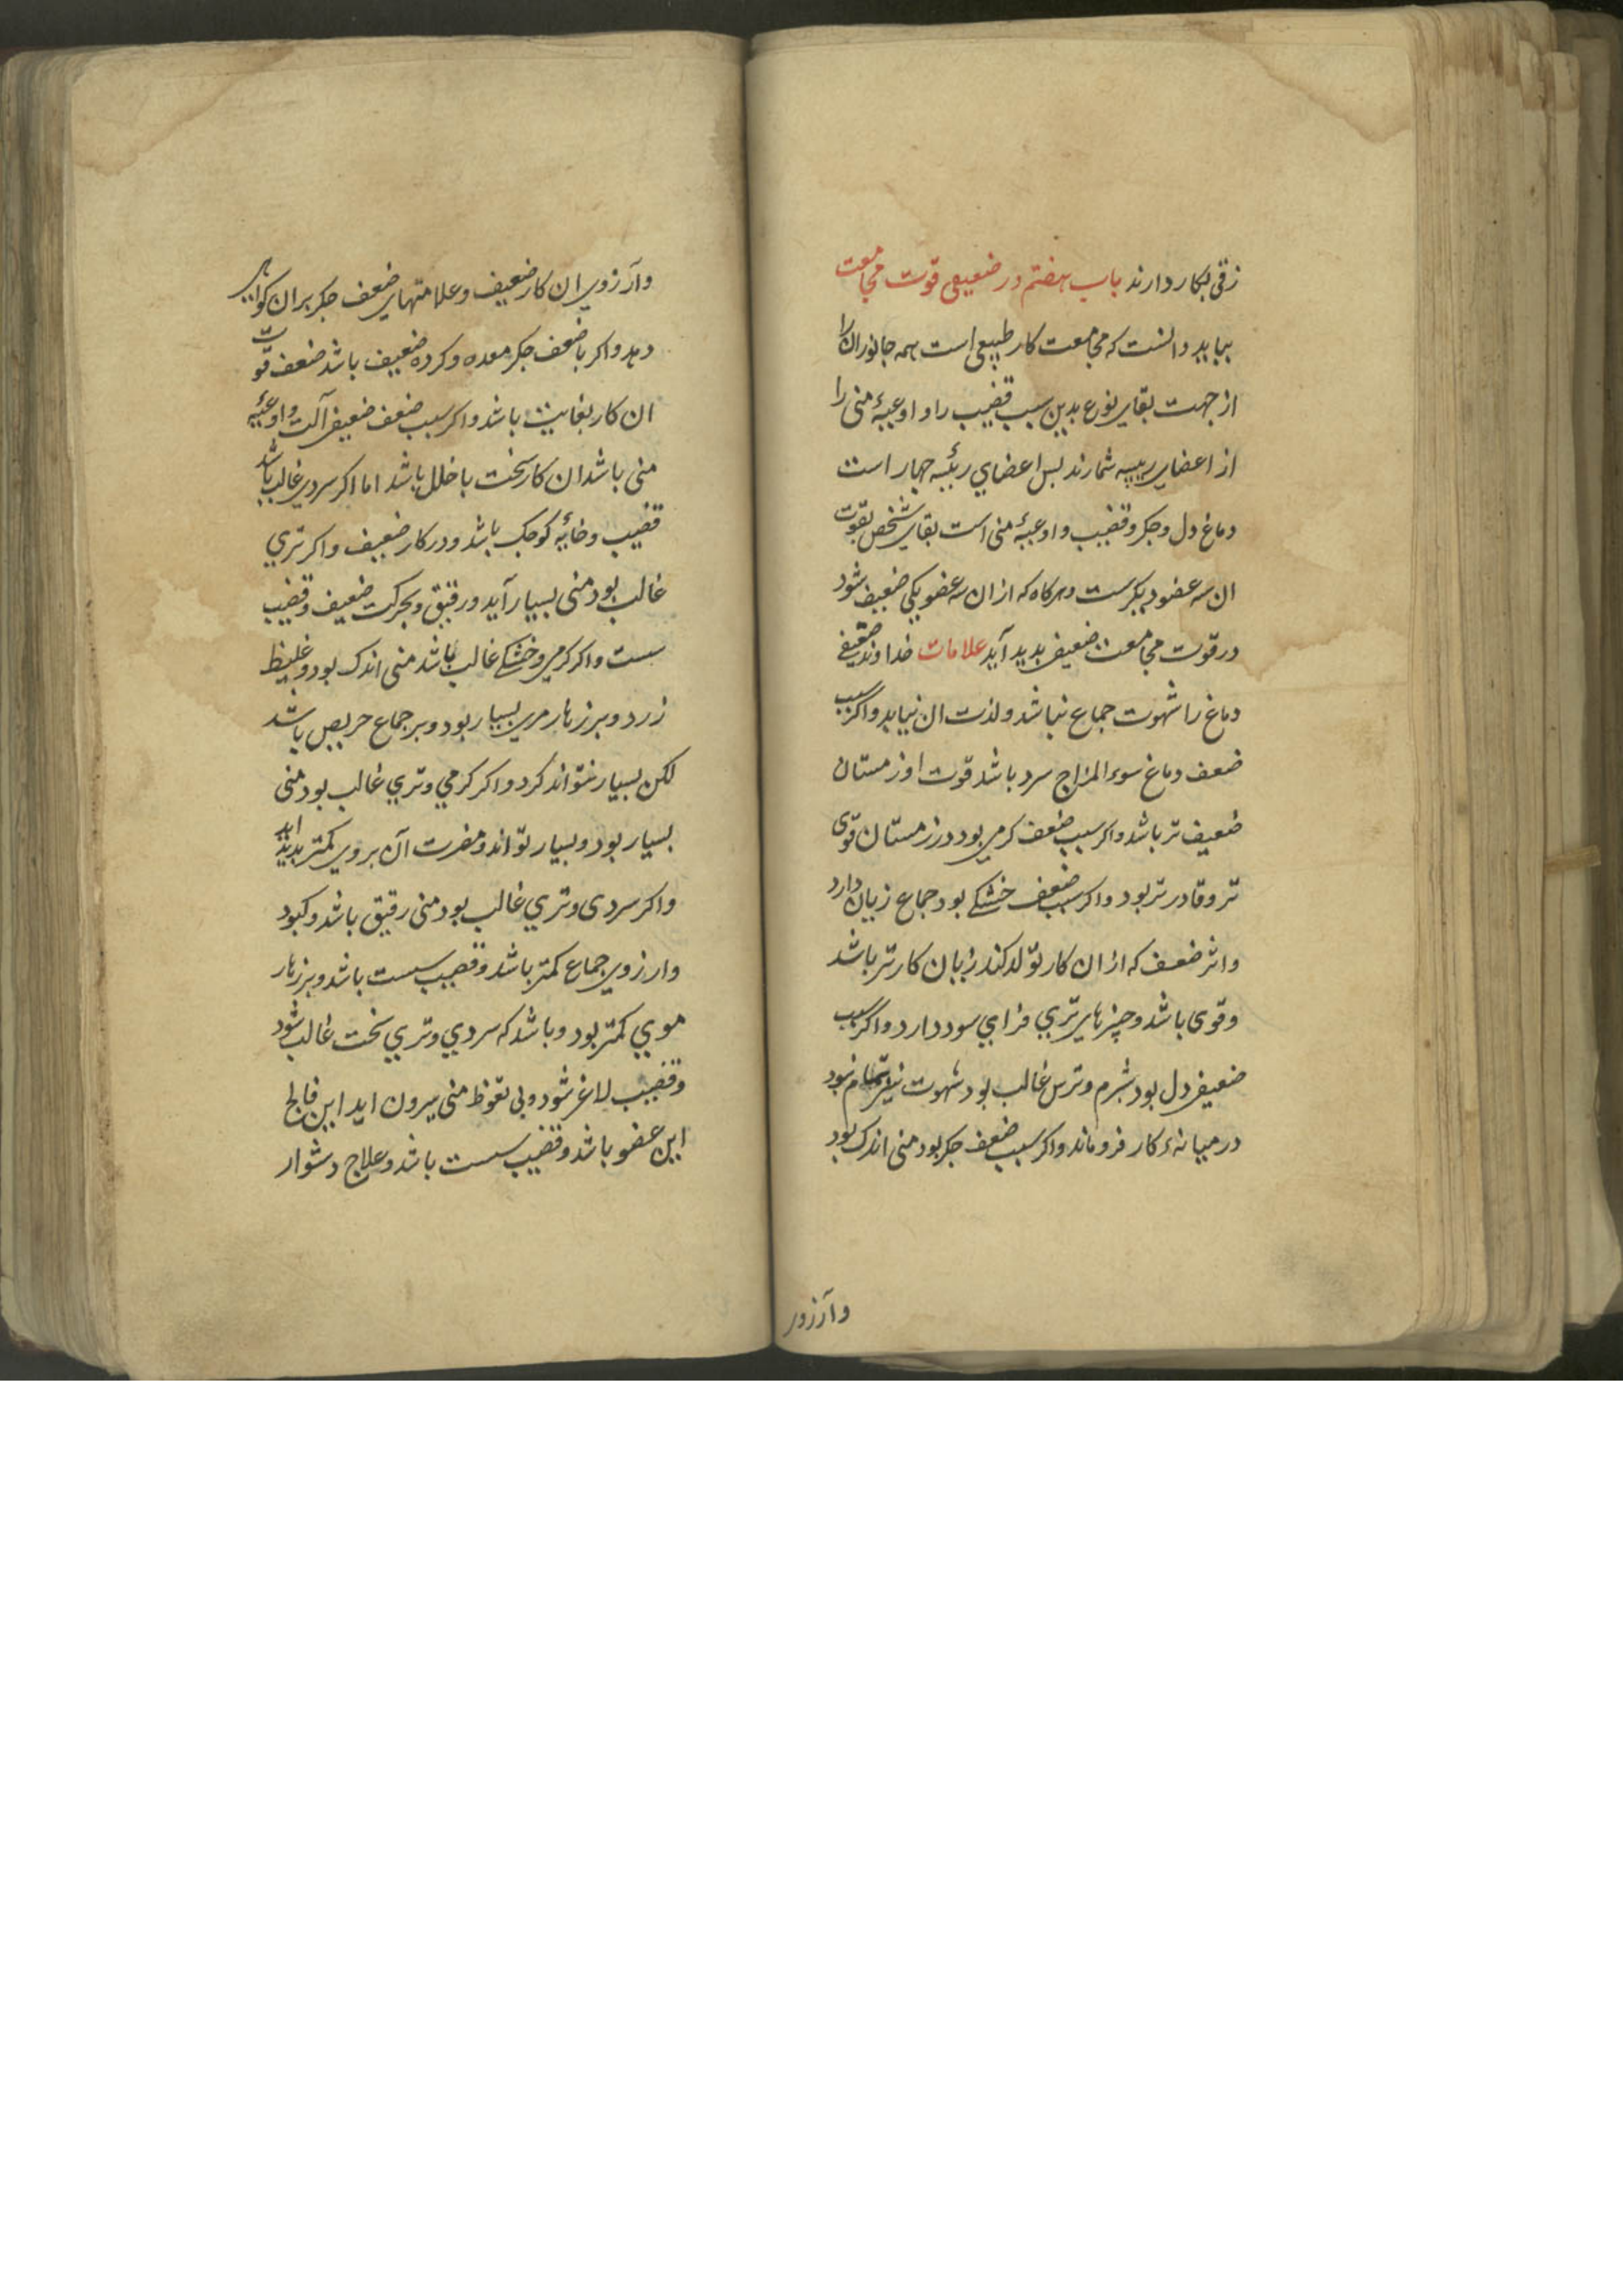 زقی بکار دارند باب هفتم در ضعیفی قوت مجامعت
بباید دانست که مجامعت کار طبیعی است همه جانوران را
از جهت بقای نوع بدین سبب قضیب را و اوعیهٔ منی را
از اعضای رییسه شمارند بس اعضاي رئیسه چهار است
دماغ دل و جکر و قضیب و اوعیهٔ منی است بقای شخص بقوت
ان سه عضو دیکرست و هرکاه که از ان سه عضو یکی ضعیف شود
در قوت مجامعت ضعیفی بدید آید علامات خداوند ضعیفی
دماغ را شهوت جماع نباشد و لذت ان نیابد و اکر سبب
ضعف دماغ سوء المزاج سرد باشد قوت او زمستان
ضعیف تر باشد و اکر سبب ضعف کرمی بود در زمستان قوی
تر و قادر تر بود و اکر سبب ضعف خشکی بود جماع زیان دارد
و اثر ضعف که از ان کار تولد کند زیان کارتر باشد
و قوی باشد و چیزهای تري فزاي سود دارد و اکر سبب
ضعیفی دل بود شرم و ترس غالب بود شهوت نیز تمام نبود
در میانهٔ کار فروماند و اکر سبب ضعف جکر بود منی اندک بود
وآرزوی
وآرزوی ان کار ضعیف و علامتهای ضعف جکر بران کواهی
دهد و اکر با ضعف جکر معده و کرده ضعیف باشد ضعف قوّت
ان کار بغایت باشد و اکر سبب ضعف ضعیفی آلت و اوعیهٔ
منی باشد ان کار سخت با خلل باشد اما اکر سردي غالب باشد
قضیب و خایهٔ کوجک باشد و در کار ضعیف و اکر تري
غالب بود منی بسیار آید و رقیق و بحرکت ضعیف و قضیب
سست و اکر کرمی و خشکی غالب باشد منی اندک بود و غلیظ
زرد و بر زهار موی بسیار بود و بر جماع حریص باشد
لکن بسیار نتواند کرد و اکر کرمي و تري غالب بود منی
بسیار بود و بسیار تواند و مضرت آن بروی کمتر بدید اید
و اکر سردی و تري غالب بود منی رقیق باشد و کبود
وارزوی جماع کمتر باشد و قضیب سست باشد و بر زهار
موي کمتر بود و باشد که سردي و تري سخت غالب شود
و قضیب لاغر شود و بی نعوظ منی بیرون اید این فالج
این عضو باشد و قضیب سست باشد و علاج دشوار